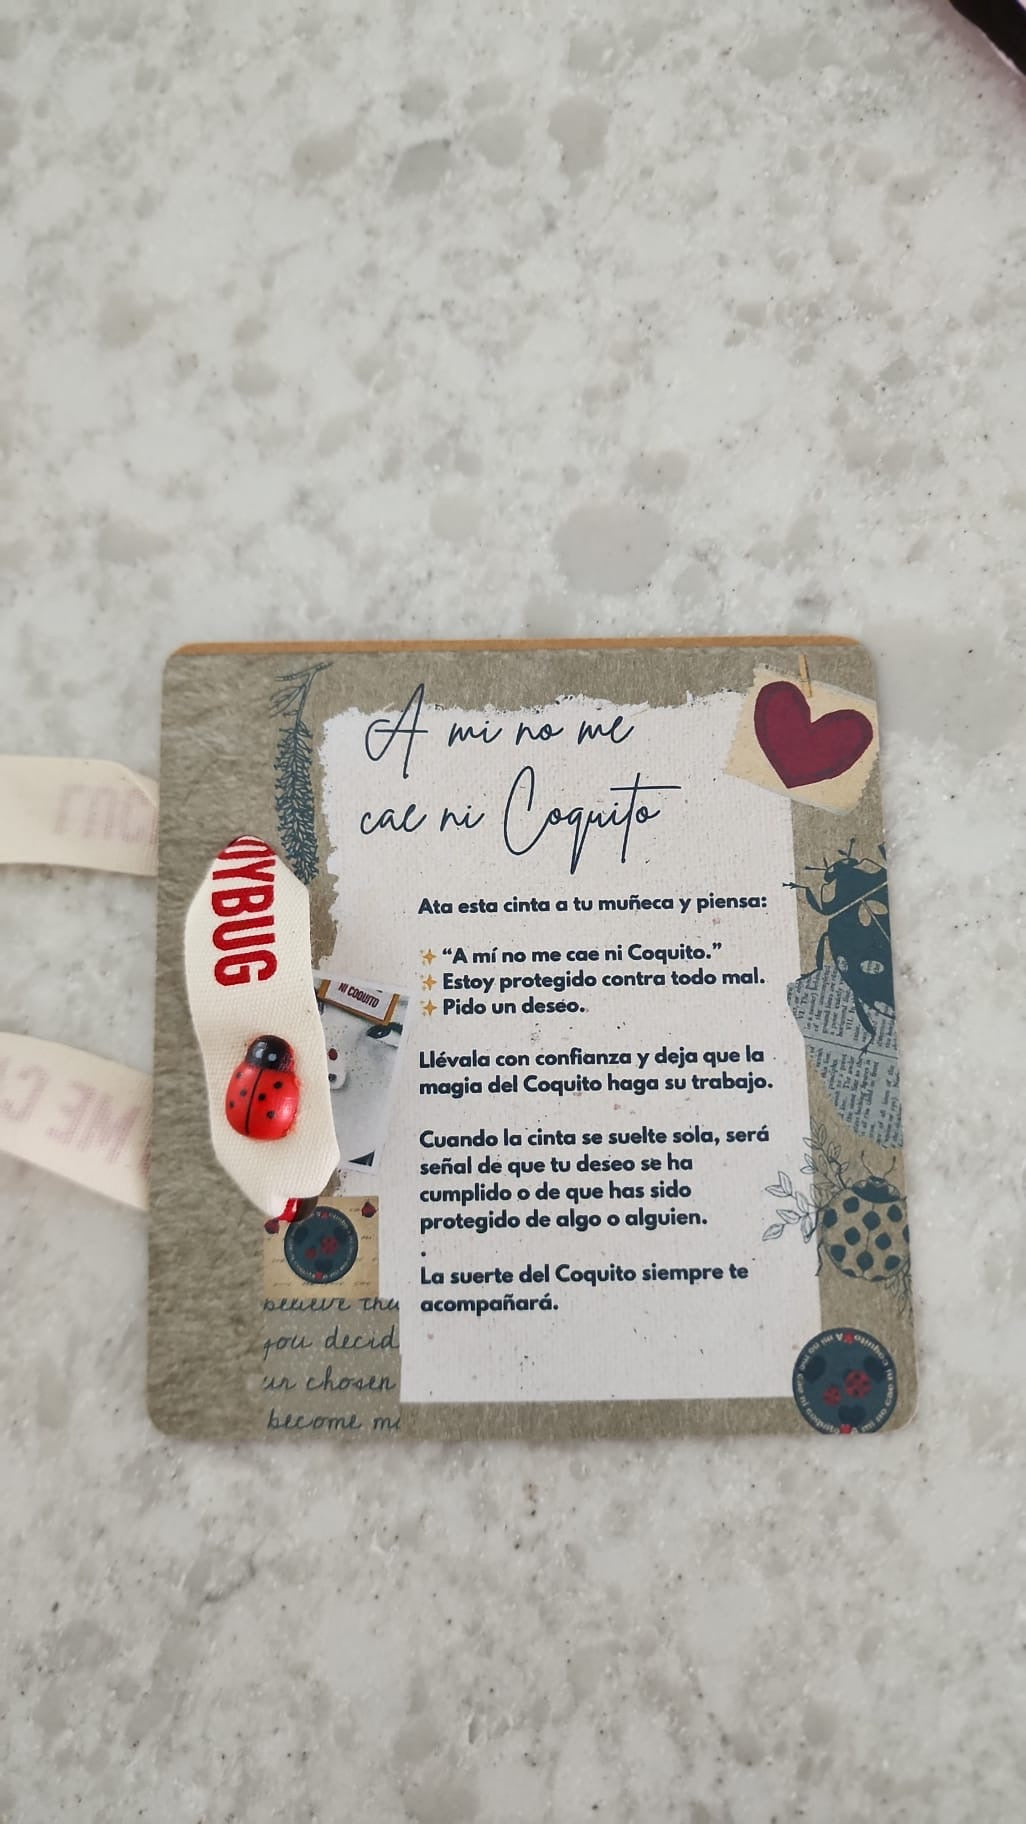 A mi no me
cae ni Coquito
Ata esta cinta a tu muñeca y piensa:
✨ “A mí no me cae ni Coquito.”
✨ Estoy protegido contra todo mal.
✨ Pido un deseo.
Llévala con confianza y deja que la
magia del Coquito haga su trabajo.
Cuando la cinta se suelte sola, será
señal de que tu deseo se ha
cumplido o de que has sido
protegido de algo o alguien.
.
La suerte del Coquito siempre te
acompañará.
YBUG
NI COQUITO
believe
you decid
chosen
become
A mi no me cae ni coquito